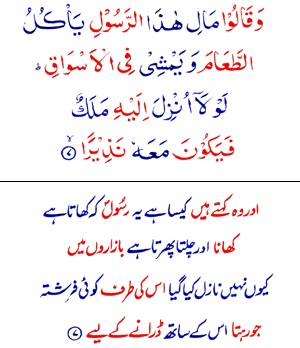 وَقَالُوْا مَالِ هٰذَا الرَّسُوْلِ يَاْكُلُ
الطَّعَامَ وَيَمْشِيْ فِي الْاَسْوَاقِ ؕ
لَوْلَاۤ اُنْزِلَ اِلَيْهِ مَلَكٌ
فَيَكُوْنَ مَعَهٗ نَذِيْرًا ۙ ﴿۷﴾
اور وہ کہتے ہیں کیسا ہے یہ رسُولؐ کہ کھاتا ہے
کھانا اور چلتا پھرتا ہے بازاروں میں
کیوں نہیں نازل کیا گیا اس کی طرف کوئی فرشتہ
جو رہتا اس کے ساتھ ڈرانے کے لیے ﴿۷﴾